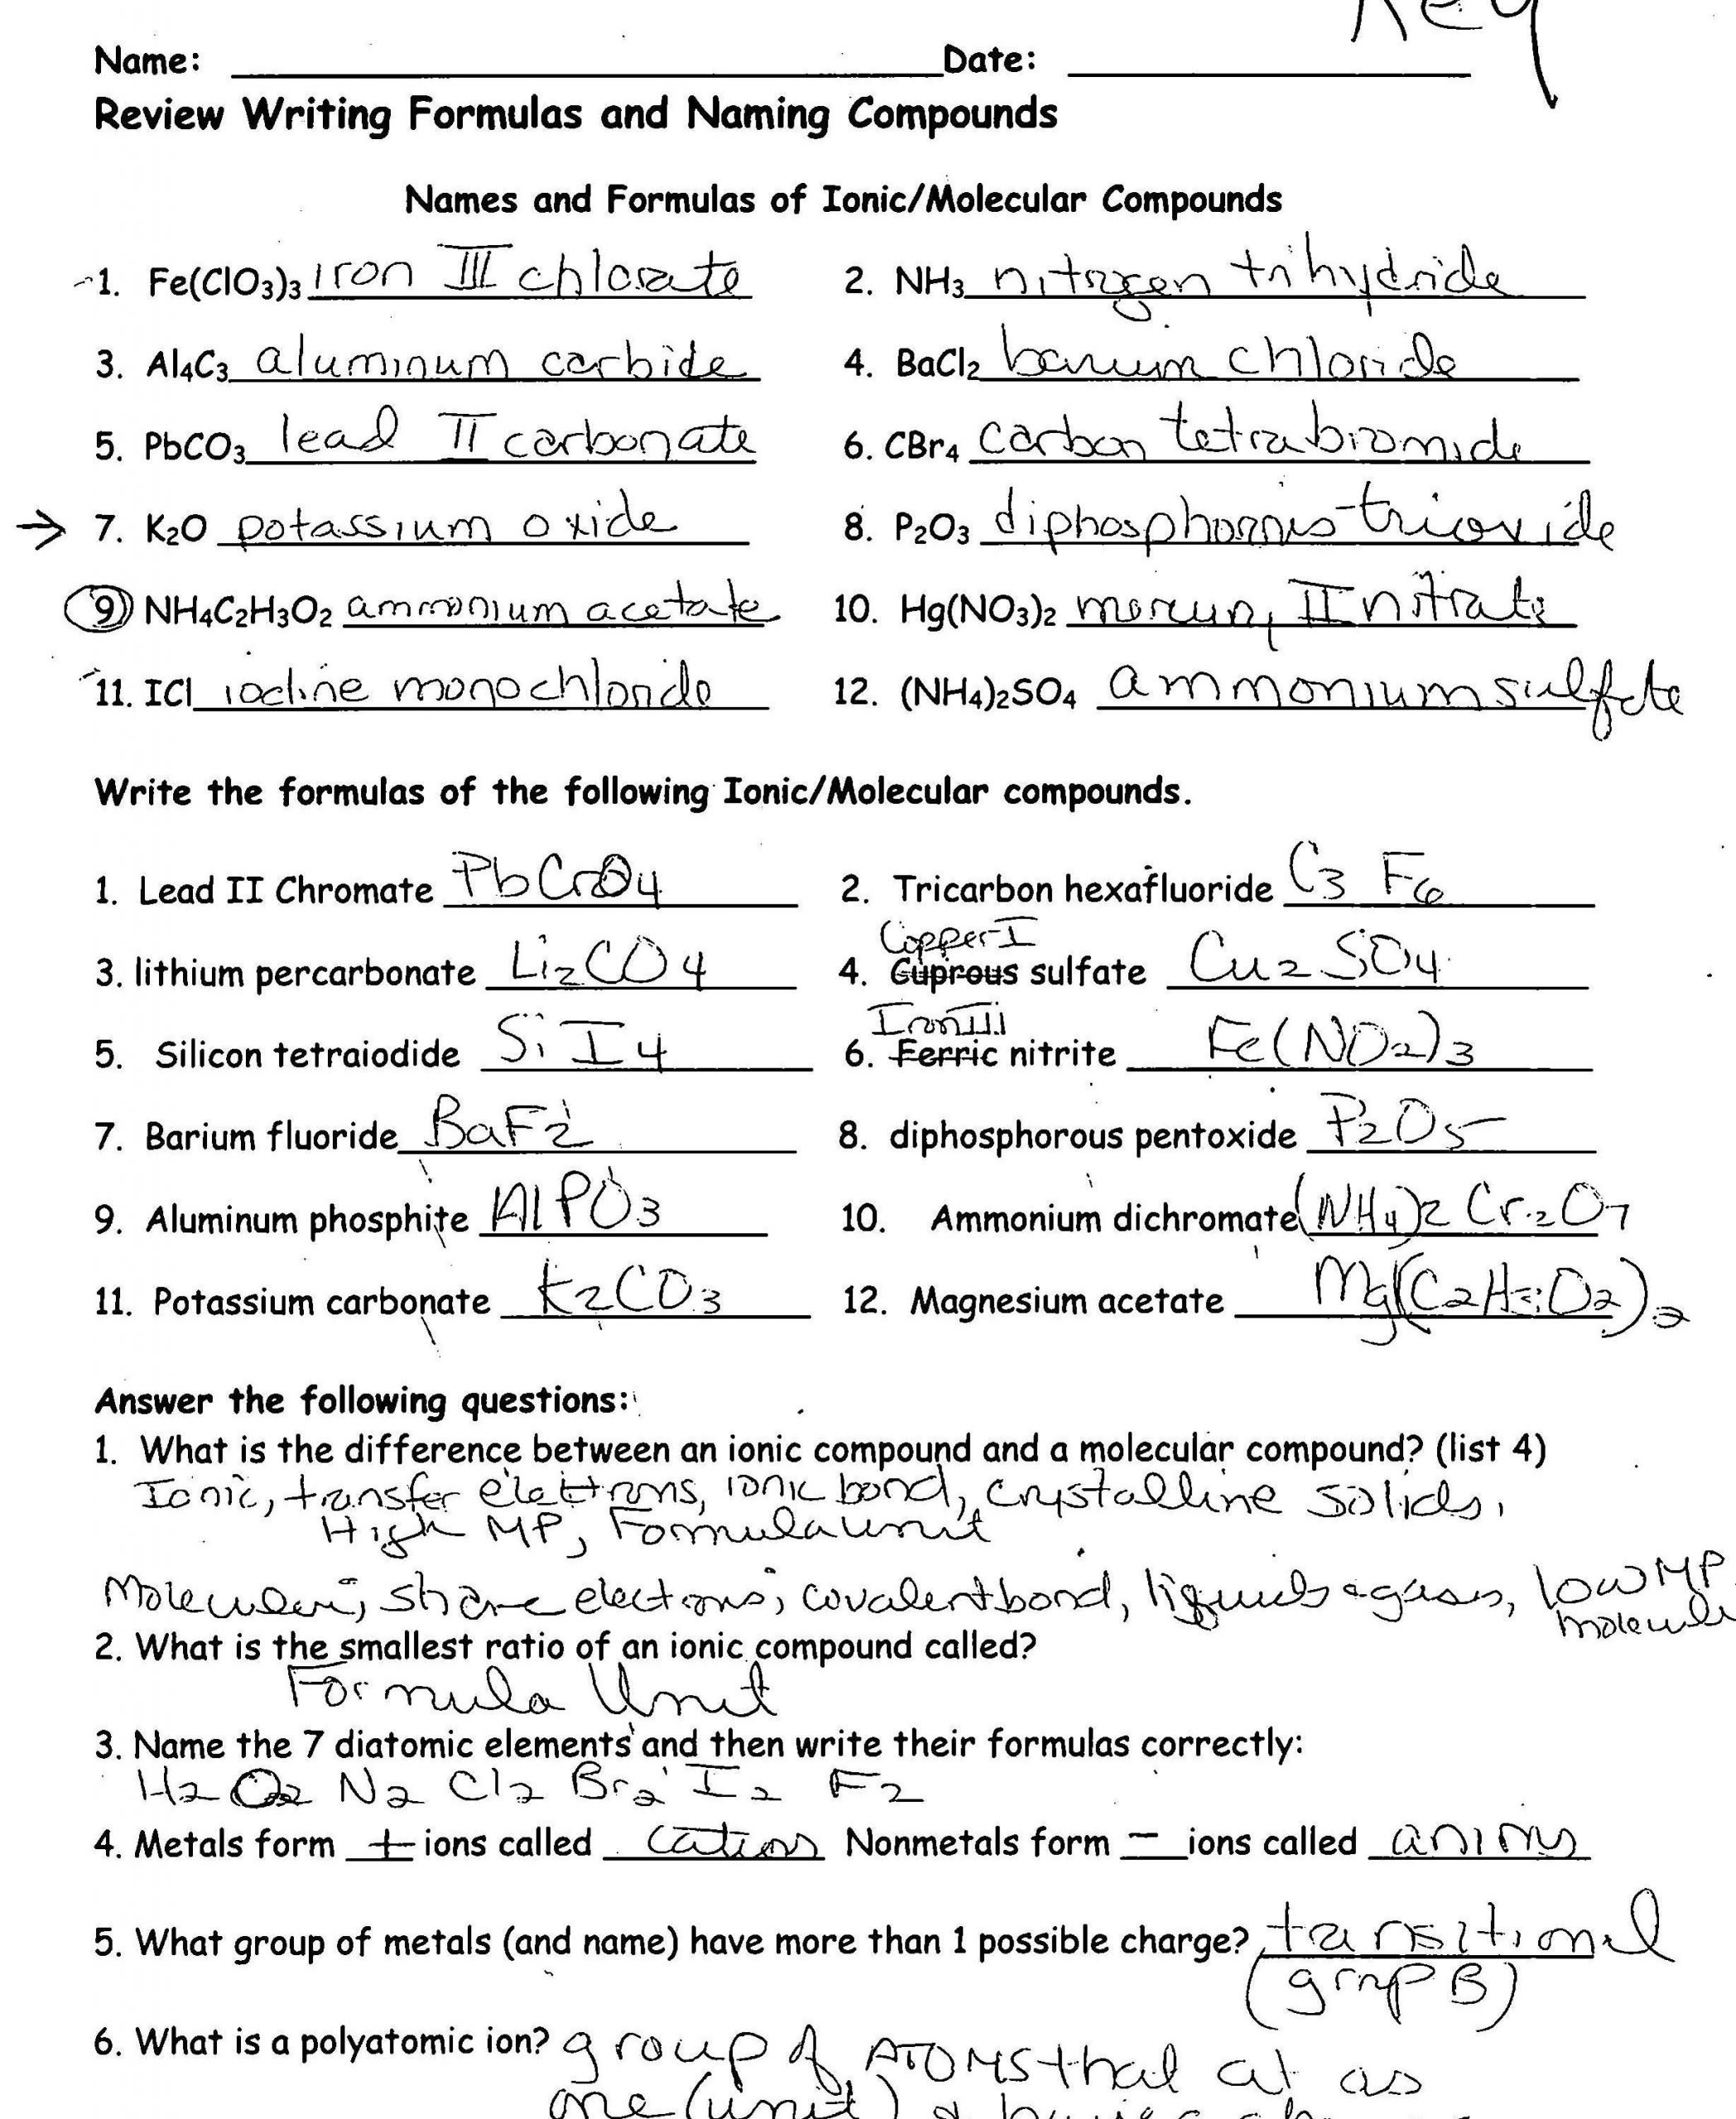 Key
Name: Date:
Review Writing Formulas and Naming Compounds
Names and Formulas of Ionic/Molecular Compounds
1. Fe(ClO3)3 iron III chlorate 2. NH3 nitrogen trihydride
3. Al4C3 aluminum carbide 4. BaCl2 barium chloride
5. PbCO3 lead II carbonate 6. CBr4 carbon tetrabromide
→ 7. K2O potassium oxide 8. P2O3 diphosphorus trioxide
9) NH4C2H3O2 ammonium acetate 10. Hg(NO3)2 mercury II nitrate
11. ICl iodine monochloride 12. (NH4)2SO4 ammonium sulfate
Write the formulas of the following Ionic/Molecular compounds.
1. Lead II Chromate PbCrO4 2. Tricarbon hexafluoride C3 F6
Copper I
3. lithium percarbonate Li2CO4 4. Cuprous sulfate Cu2 SO4
Iron III
5. Silicon tetraiodide SiI4 6. Ferric nitrite Fe(NO2)3
7. Barium fluoride BaF2 8. diphosphorous pentoxide P2O5
9. Aluminum phosphite AlPO3 10. Ammonium dichromate (NH4)2 Cr2O7
11. Potassium carbonate K2CO3 12. Magnesium acetate Mg(C2H3O2)2
Answer the following questions:
1. What is the difference between an ionic compound and a molecular compound? (list 4)
Ionic, transfer electrons, ionic bond, crystalline solids,
High MP, Formula unit
Molecular, share electrons, covalent bond, liquids & gases, low MP
molecule
2. What is the smallest ratio of an ionic compound called?
Formula Unit
3. Name the 7 diatomic elements and then write their formulas correctly:
H2 O2 N2 Cl2 Br2 I2 F2
4. Metals form + ions called cations Nonmetals form — ions called anions
5. What group of metals (and name) have more than 1 possible charge? transitional
(group B)
6. What is a polyatomic ion? group of ATOMS that act as
one (unit) &